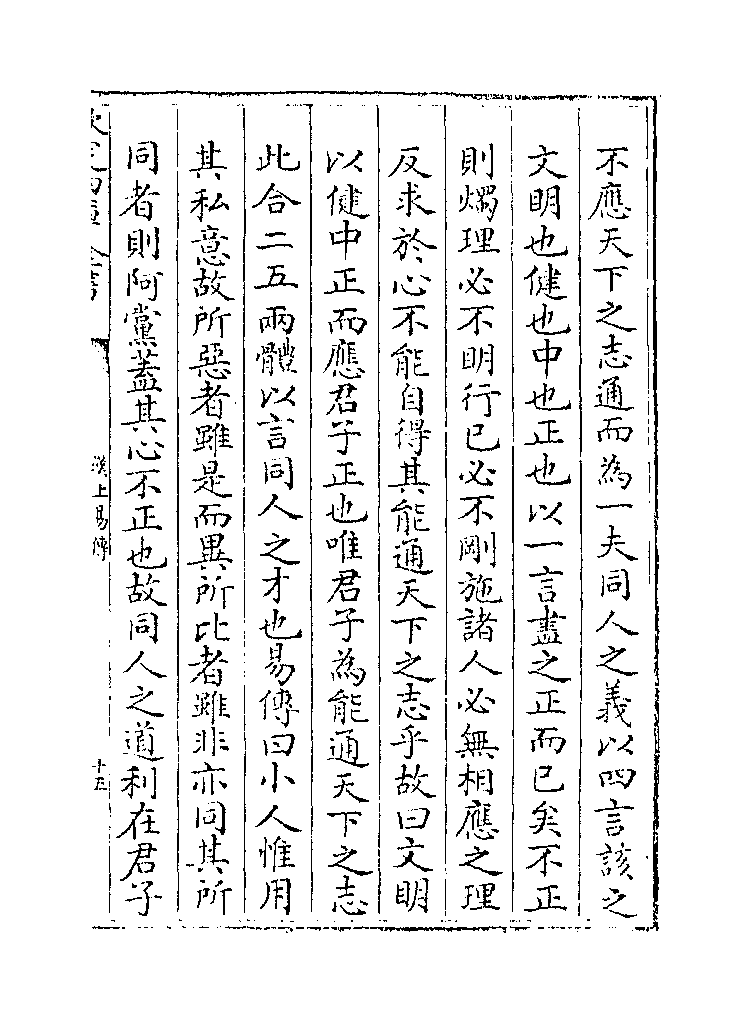 不應天下之志通而為一夫同人之義以四言該之
文明也健也中也正也以一言盡之正而已矣不正
則燭理必不明行已必不剛施諸人必無相應之理
反求於心不能自得其能通天下之志乎故曰文明
以健中正而應君子正也唯君子為能通天下之志
此合二五兩體以言同人之才也易傳曰小人惟用
其私意故所惡者雖是而異所比者雖非亦同其所
同者則阿黨蓋其心不正也故同人之道利在君子
欽定四庫全書
漢上易傳
十五